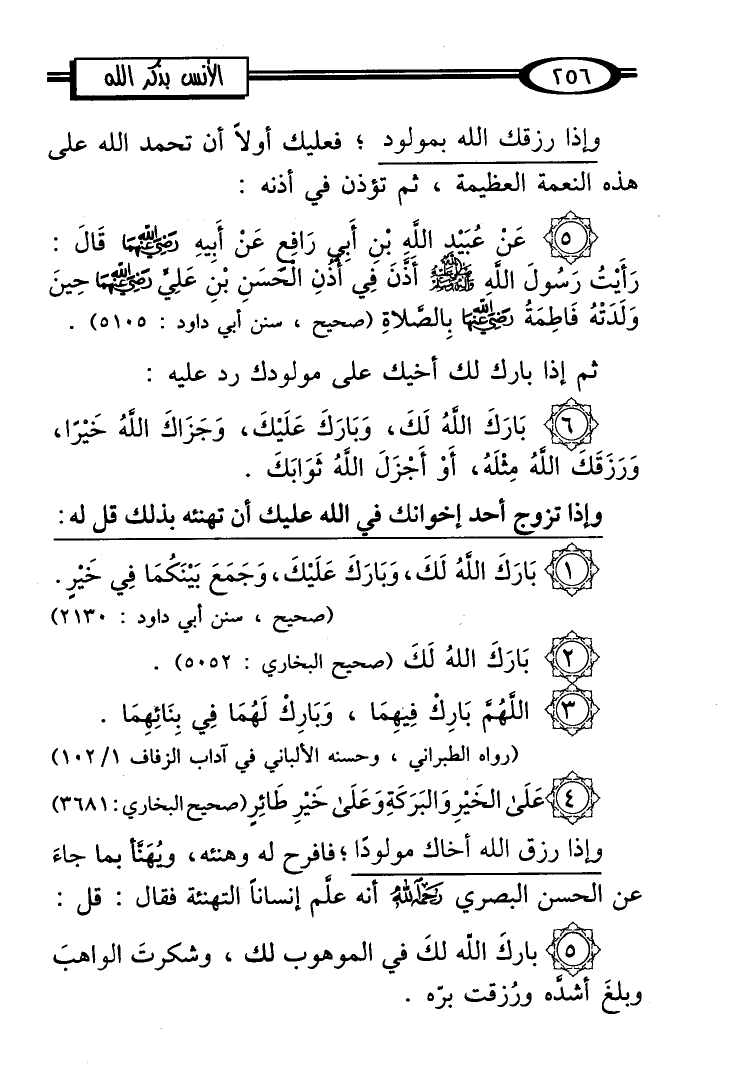 الأنس بذكر الله
٢٥٦
وإذا رزقك الله بمولود ؛ فعليك أولاً أن تحمد الله على
هذه النعمة العظيمة ، ثم تؤذن في أذنه :
٥ عَنْ عُبَيْدِ اللَّهِ بْنِ أَبِي رَافِعٍ عَنْ أَبِيهِ رَضِيَ اللَّهُ عَنْهُمَا قَالَ :
رَأَيْتُ رَسُولَ اللَّهِ ﷺ أَذَّنَ فِي أُذُنِ الْحَسَنِ بْنِ عَلِيٍّ رَضِيَ اللَّهُ عَنْهُمَا حِينَ
وَلَدَتْهُ فَاطِمَةُ رَضِيَ اللَّهُ عَنْهَا بِالصَّلَاةِ (صحيح ، سنن أبي داود : ٥١٠٥) .
ثم إذا بارك لك أخيك على مولودك رد عليه :
٦ بَارَكَ اللَّهُ لَكَ، وَبَارَكَ عَلَيْكَ، وَجَزَاكَ اللَّهُ خَيْرًا،
وَرَزَقَكَ اللَّهُ مِثْلَهُ، أَوْ أَجْزَلَ اللَّهُ ثَوَابَكَ .
وإذا تزوج أحد إخوانك في الله عليك أن تهنئه بذلك قل له:
١ بَارَكَ اللَّهُ لَكَ، وَبَارَكَ عَلَيْكَ، وَجَمَعَ بَيْنَكُمَا فِي خَيْرٍ .
(صحيح ، سنن أبي داود : ٢١٣٠)
٢ بَارَكَ اللهُ لَكَ (صحيح البخاري : ٥٠٥٢) .
٣ اللَّهُمَّ بَارِكْ فِيهِمَا ، وَبَارِكْ لَهُمَا فِي بِنَائِهِمَا .
(رواه الطبراني ، وحسنه الألباني في آداب الزفاف ١٠٢/١)
٤ عَلَىٰ الخَيْرِ وَالبَرَكَةِ وَعَلَىٰ خَيْرِ طَائِرٍ (صحيح البخاري: ٣٦٨١)
وإذا رزق الله أخاك مولودًا ؛ فافرح له وهنئه، ويُهَنَّأ بما جاءَ
عن الحسن البصري رَحِمَهُ اللَّهُ أنه علَّم إنساناً التهنئة فقال : قل :
٥ باركَ اللّه لكَ في الموهوب لك ، وشكرتَ الواهبَ
وبلغَ أشدَّه ورُزقت برّه .